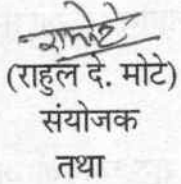 (राहुल दे. मोटे)
संयोजक
तथा